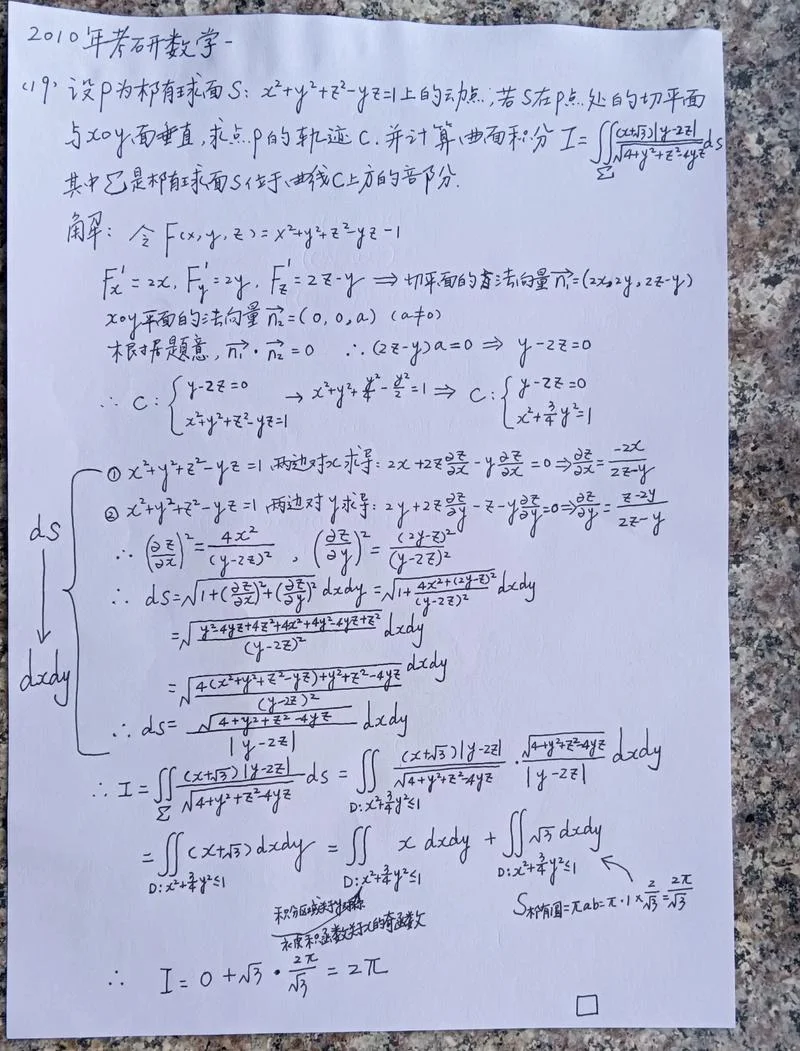 2010年考研数学一
(19) 设P为椭球面S: x²+y²+z²-yz=1上的动点,若S在P点处的切平面
与xoy面垂直,求点P的轨迹C.并计算曲面积分 I=∬_Σ (x+√3)|y-2z|/√(4+y²+z²-4yz) ds
其中Σ是椭球面S位于曲线C上方的部分.
解: 令F(x,y,z)=x²+y²+z²-yz-1
F'x=2x, F'y=2y, F'z=2z-y ⇒ 切平面的法向量n₁=(2x,2y,2z-y)
xoy平面的法向量n₂=(0,0,a) (a≠0)
根据题意, n₁·n₂=0 ∴(2z-y)a=0 ⇒ y-2z=0
∴ C: { y-2z=0 x²+y²+z²-yz=1 → x²+y²+y²/4-y²/2=1 ⇒ C: { y-2z=0 x²+3/4y²=1
① x²+y²+z²-yz=1 两边对x求导: 2x+2z∂z/∂x-y∂z/∂x=0⇒∂z/∂x=-2x/(2z-y)
② x²+y²+z²-yz=1 两边对y求导: 2y+2z∂z/∂y-z-y∂z/∂y=0⇒∂z/∂y=(z-2y)/(2z-y)
∴ (∂z/∂x)²=4x²/(y-2z)², (∂z/∂y)²=(2y-z)²/(y-2z)²
ds → dxdy
∴ ds=√(1+(∂z/∂x)²+(∂z/∂y)²) dxdy=√(1+(4x²+(2y-z)²)/(y-2z)²) dxdy
=√((y²-4yz+4z²+4x²+4y²-4yz+z²)/(y-2z)²) dxdy
=√((4(x²+y²+z²-yz)+y²+z²-4yz)/(y-2z)²) dxdy
∴ ds=√(4+y²+z²-4yz)/|y-2z| dxdy
∴ I=∬_Σ (x+√3)|y-2z|/√(4+y²+z²-4yz) ds = ∬_{D:x²+3/4y²≤1} (x+√3)|y-2z|/√(4+y²+z²-4yz) · √(4+y²+z²-4yz)/|y-2z| dxdy
=∬_{D:x²+3/4y²≤1} (x+√3)dxdy = ∬_{D:x²+3/4y²≤1} x dxdy + ∬_{D:x²+3/4y²≤1} √3 dxdy
S椭圆=πab=π·1×2/√3=2π/√3
积分区域关于y轴对称
被积函数关于x的奇函数
∴ I=0+√3·2π/√3=2π
□